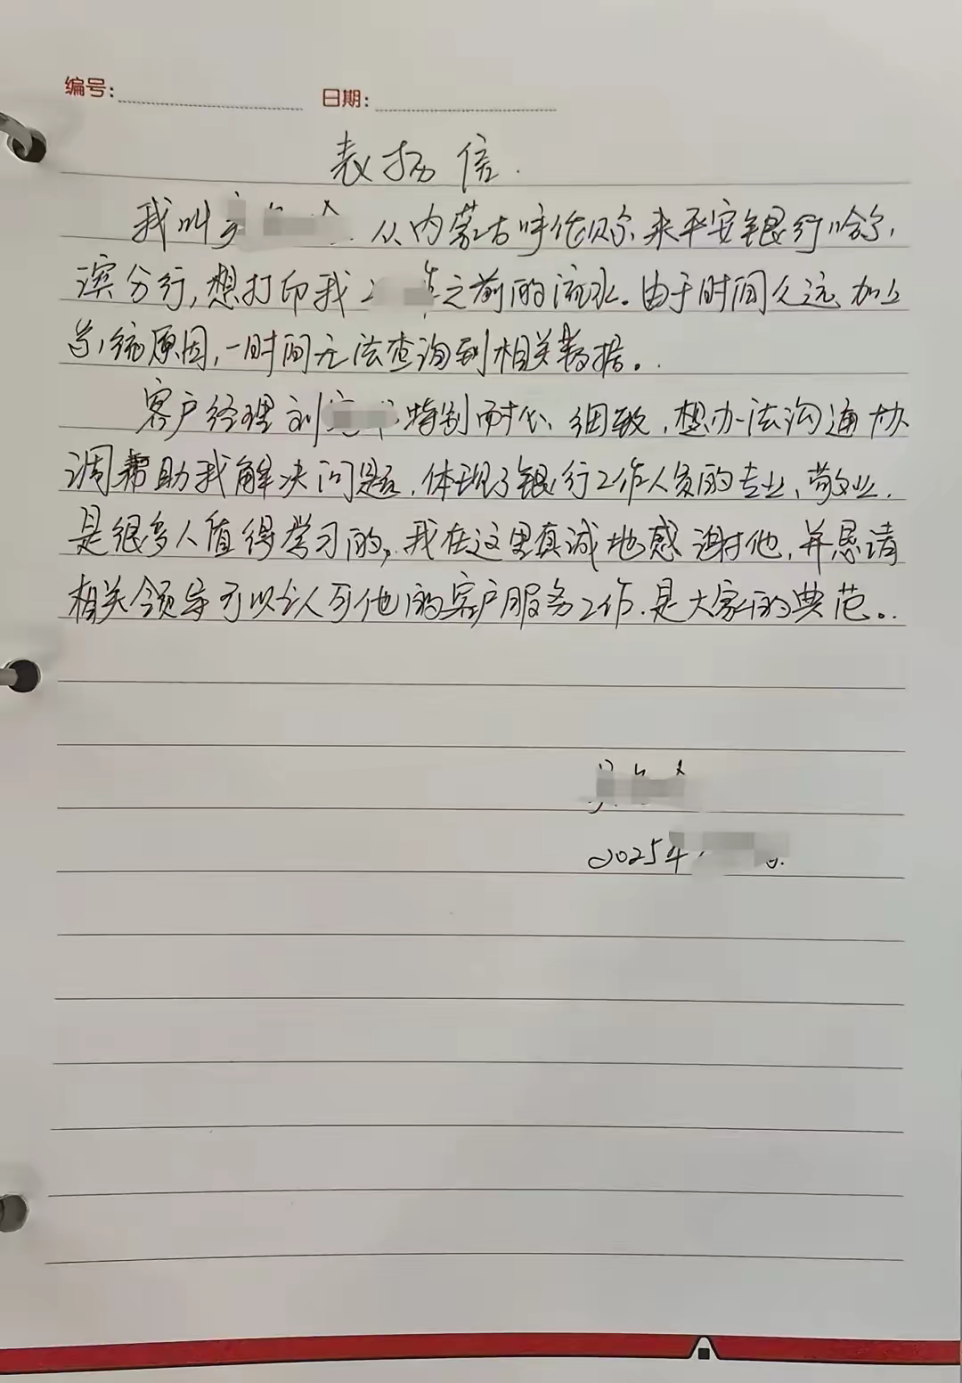 编号: 日期:
表扬信.
我叫 从内蒙古呼伦贝尔来平安银行哈尔
滨分行,想打印我 之前的流水。由于时间久远、加上
系统原因,一时间无法查询到相关数据。
客户经理刘 特别耐心、细致,想办法沟通协
调帮助我解决问题,体现了银行工作人员的专业、敬业.
是很多人值得学习的,我在这里真诚地感谢他,并恳请
相关领导可以认可他的客户服务工作.是大家的典范。
2025年